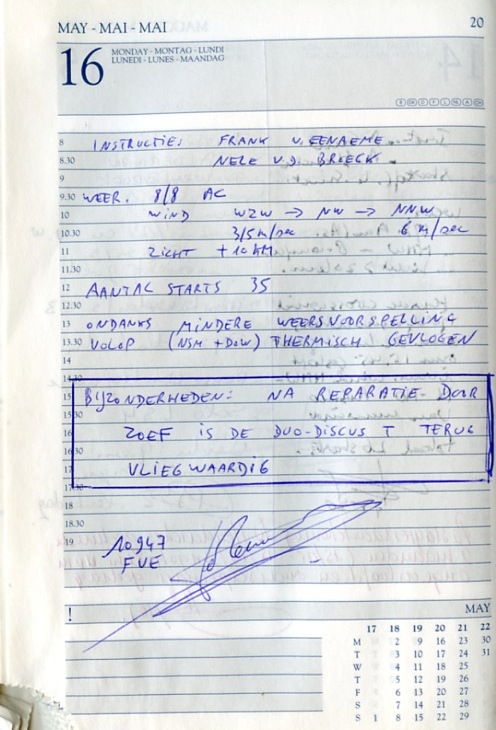 MAY - MAI - MAI
20
16
MONDAY - MONTAG - LUNDI
LUNEDI - LUNES - MAANDAG
8 INSTRUCTIE: FRANK V. EENAEME
8.30 NELE V.D. BROECK
9
9.30 WEER. 8/8 AC
10 WIND WZW → NW → NNW
10.30 3/5 M/SEC 6 M/SEC
11 ZICHT +10 KM
11.30
12 AANTAL STARTS 35
12.30
13 ONDANKS MINDERE WEERSVOORSPELLING
13.30 VOLOP (NSM + DOW) THERMISCH GEVLOGEN
14
14.30
15 BIJZONDERHEDEN: NA REPARATIE DOOR
15.30
16 ZOEF IS DE DUO-DISCUS T TERUG
16.30
17 VLIEGWAARDIG
17.30
18
18.30
19 10947
FVE
!
MAY
17 18 19 20 21 22
M 2 9 16 23 30
T 3 10 17 24 31
W 4 11 18 25
T 5 12 19 26
F 6 13 20 27
S 7 14 21 28
S 1 8 15 22 29